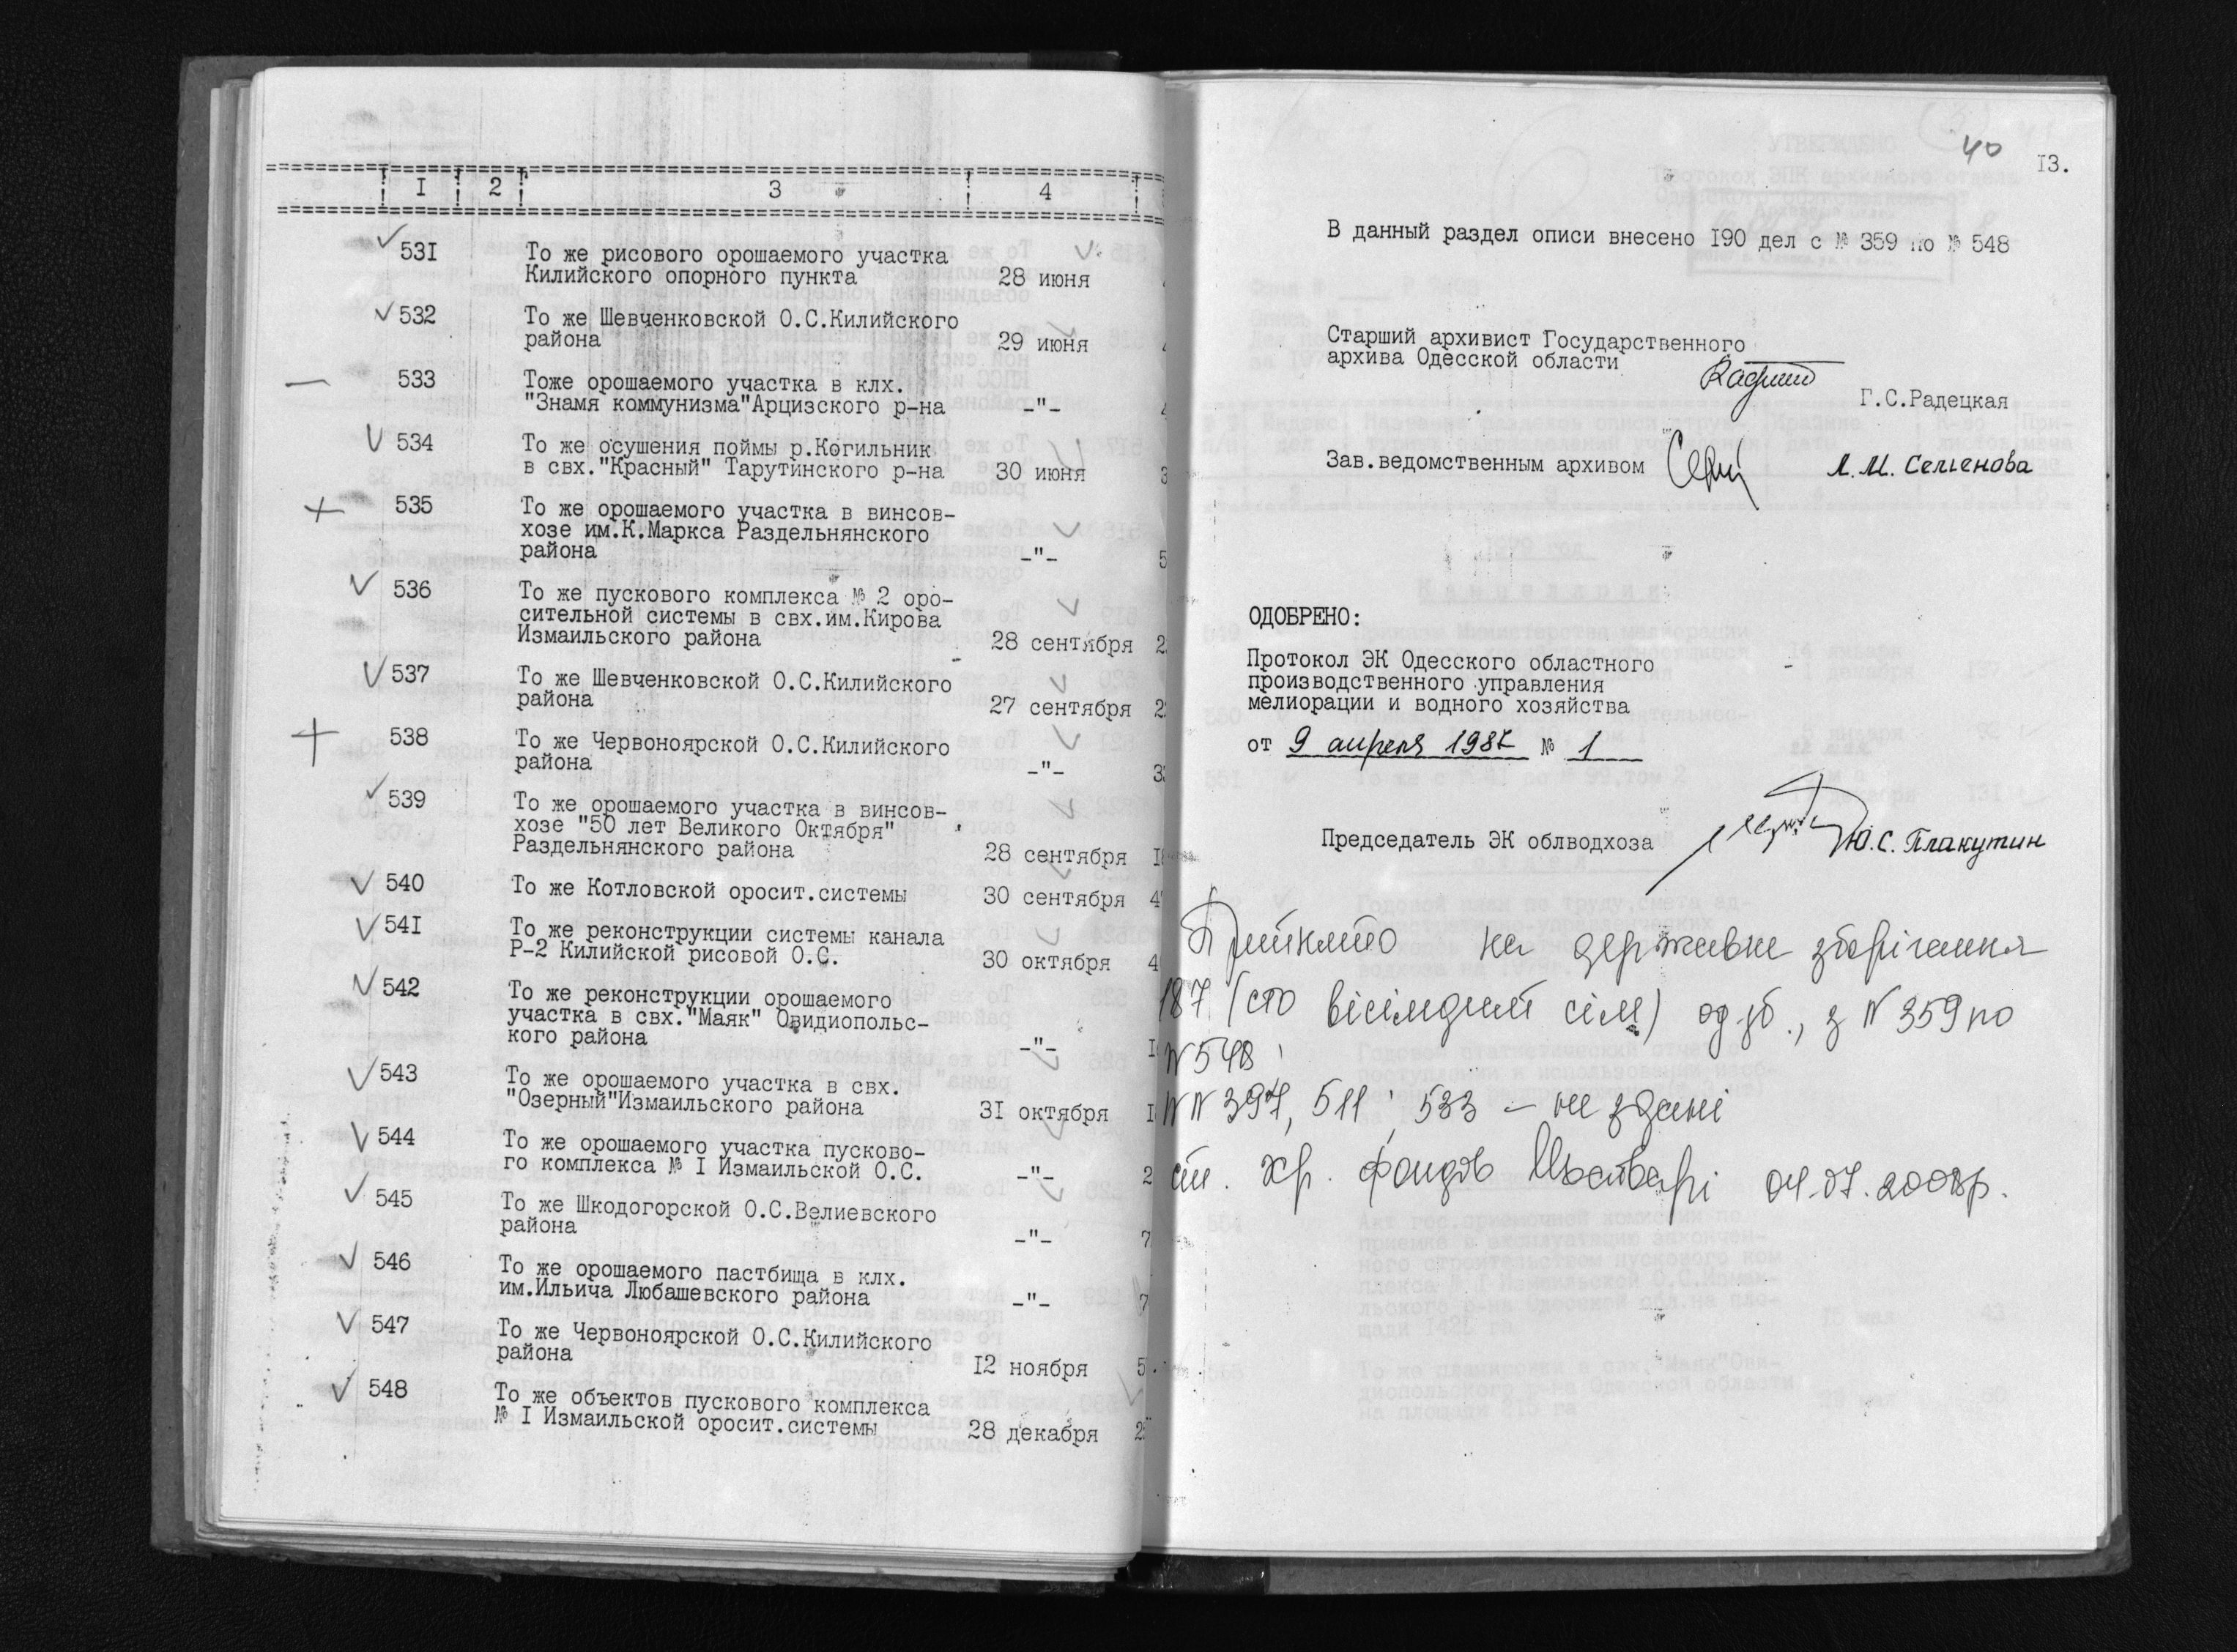 I 2 3 4
531 То же рисового орошаемого участка
Килийского опорного пункта 28 июня
532 То же Шевченковской О.С.Килийского
района 29 июня
533 Тоже орошаемого участка в клх.
"Знамя коммунизма"Арцизского р-на -"-
534 То же осушения поймы р.Когильник
в свх."Красный" Тарутинского р-на 30 июня
535 То же орошаемого участка в винсов-
хозе им.К.Маркса Раздельнянского
района -"-
536 То же пускового комплекса № 2 оро-
сительной системы в свх.им.Кирова
Измаильского района 28 сентября
537 То же Шевченковской О.С.Килийского
района 27 сентября
538 То же Червоноярской О.С.Килийского
района -"-
539 То же орошаемого участка в винсов-
хозе "50 лет Великого Октября"
Раздельнянского района 28 сентября
540 То же Котловской оросит.системы 30 сентября
541 То же реконструкции системы канала
Р-2 Килийской рисовой О.С. 30 октября
542 То же реконструкции орошаемого
участка в свх."Маяк" Овидиопольс-
кого района -"-
543 То же орошаемого участка в свх.
"Озерный"Измаильского района 31 октября
544 То же орошаемого участка пусково-
го комплекса № I Измаильской О.С. -"-
545 То же Шкодогорской О.С.Велиевского
района -"-
546 То же орошаемого пастбища в клх.
им.Ильича Любашевского района -"-
547 То же Червоноярской О.С.Килийского
района 12 ноября
548 То же объектов пускового комплекса
№ I Измаильской оросит.системы 28 декабря
40
13.
В данный раздел описи внесено 190 дел с № 359 по № 548
Старший архивист Государственного
архива Одесской области
Г.С.Радецкая
Зав.ведомственным архивом Л.М. Семенова
ОДОБРЕНО:
Протокол ЭК Одесского областного
производственного управления
мелиорации и водного хозяйства
от 9 апреля 1987 № 1
Председатель ЭК облводхоза Ю.С. Плакутин
Прийнято на державне зберігання
187 (сто вісімдесят сім) од.зб., з N 359 по
N 548
NN 397, 511, 533 – не здані
ст. хр. фондів 04.07.2008р.